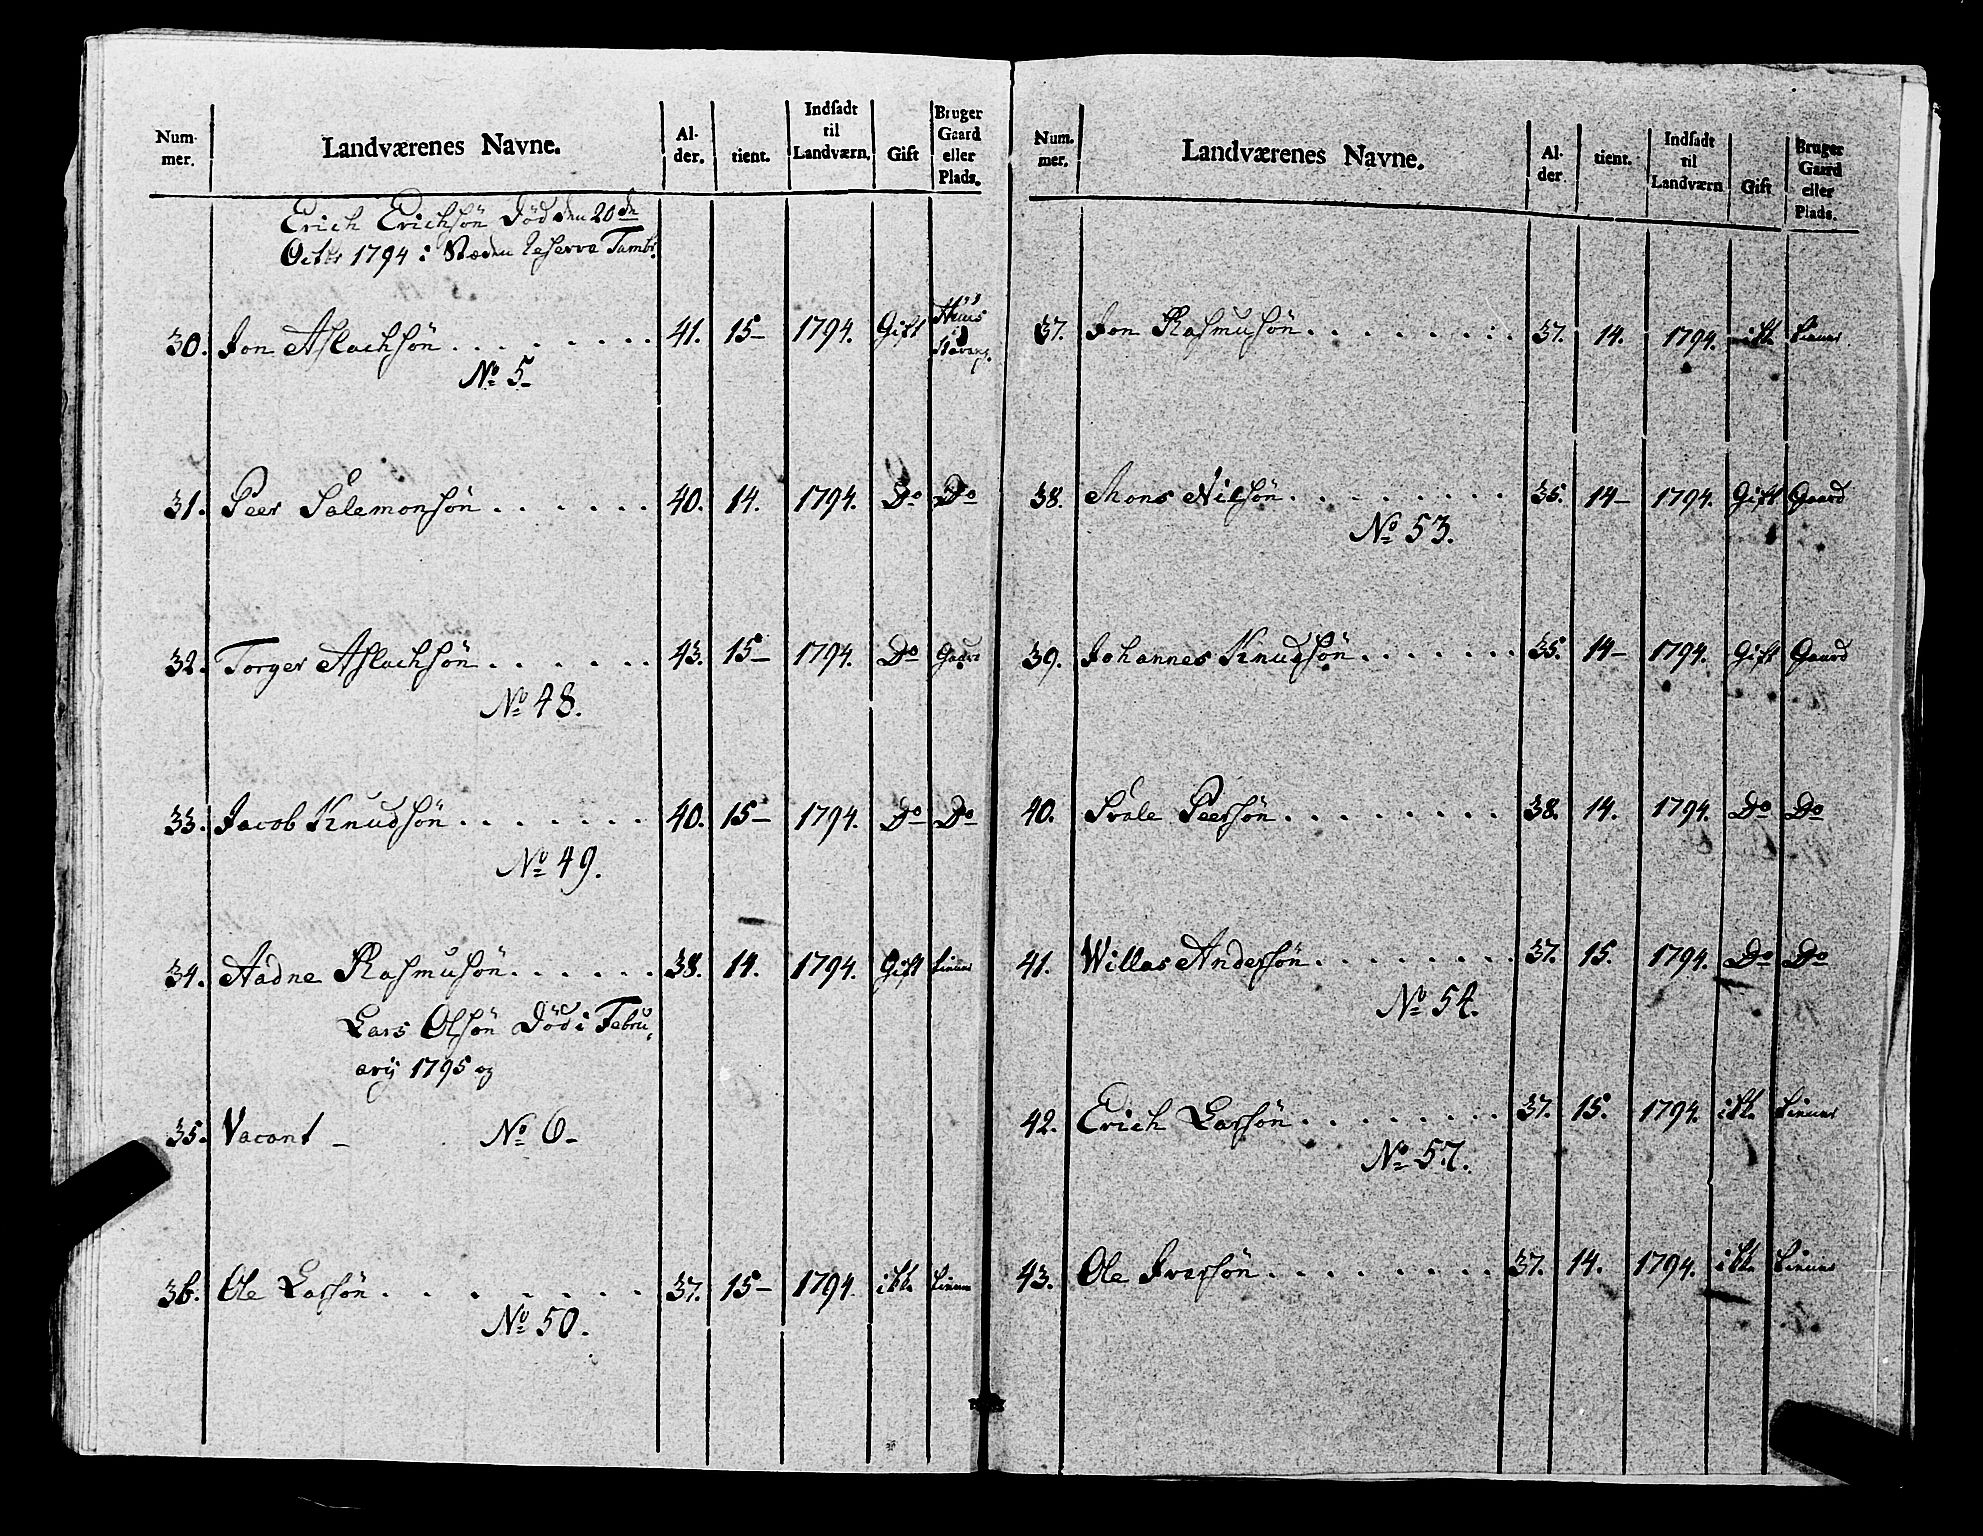 Num-
mer.
Landværenes Navne.
Al-
der.
tient.
Indsadt
til
Landværn.
Gift
Bruger
Gaard
eller
Plads.
Erich Erichsön Död den 20de
Octbr 1794 i Stæden Reserve Tambr.
30. Jon Aslachsön . . . . . . . 41. 15- 1794. Gift Huus i Stavang.
No 5-
31. Peer Salemonsön . . . . . . 40. 14. 1794. Do Do
32. Torger Aslachsön . . . . . . 43. 15- 1794. Do Gaard
No 48.
33. Jacob Knudsön . . . . . . . 40. 15- 1794. Do Do
No 49.
34. Aadne Rasmusön . . . . . . 38. 14. 1794. Gift tiener
Lars Olsön Död i Febru-
arij 1795 og
35. Vacant - No 6-
36. Ole Larsön . . . . . . . . 37. 15- 1794. ikke tiener
No 50.
Num.
mer.
Landværenes Navne.
Al-
der.
tient.
Indsadt
til
Landværn
Gift
Bruger
Gaard
eller
Plads.
37. Jon Rasmusön . . . . . . . 37. 14. 1794. ikke tiener
38. Mons Nilsön . . . . . . . . 35. 14- 1794. Gift Gaard
No 53.
39. Johannes Knudsön . . . . . . 35. 14- 1794. Gift Gaard
40. Svale Peersön . . . . . . . . 38. 14. 1794. Do Do
41. Willas Andersön . . . . . . . 37. 15. 1794. Do Do
No 54.
42. Erich Larsön . . . . . . . 37. 15. 1794. ikke tiener
No 57.
43. Ole Iversön . . . . . . . . 37. 14. 1794. ikke tiener